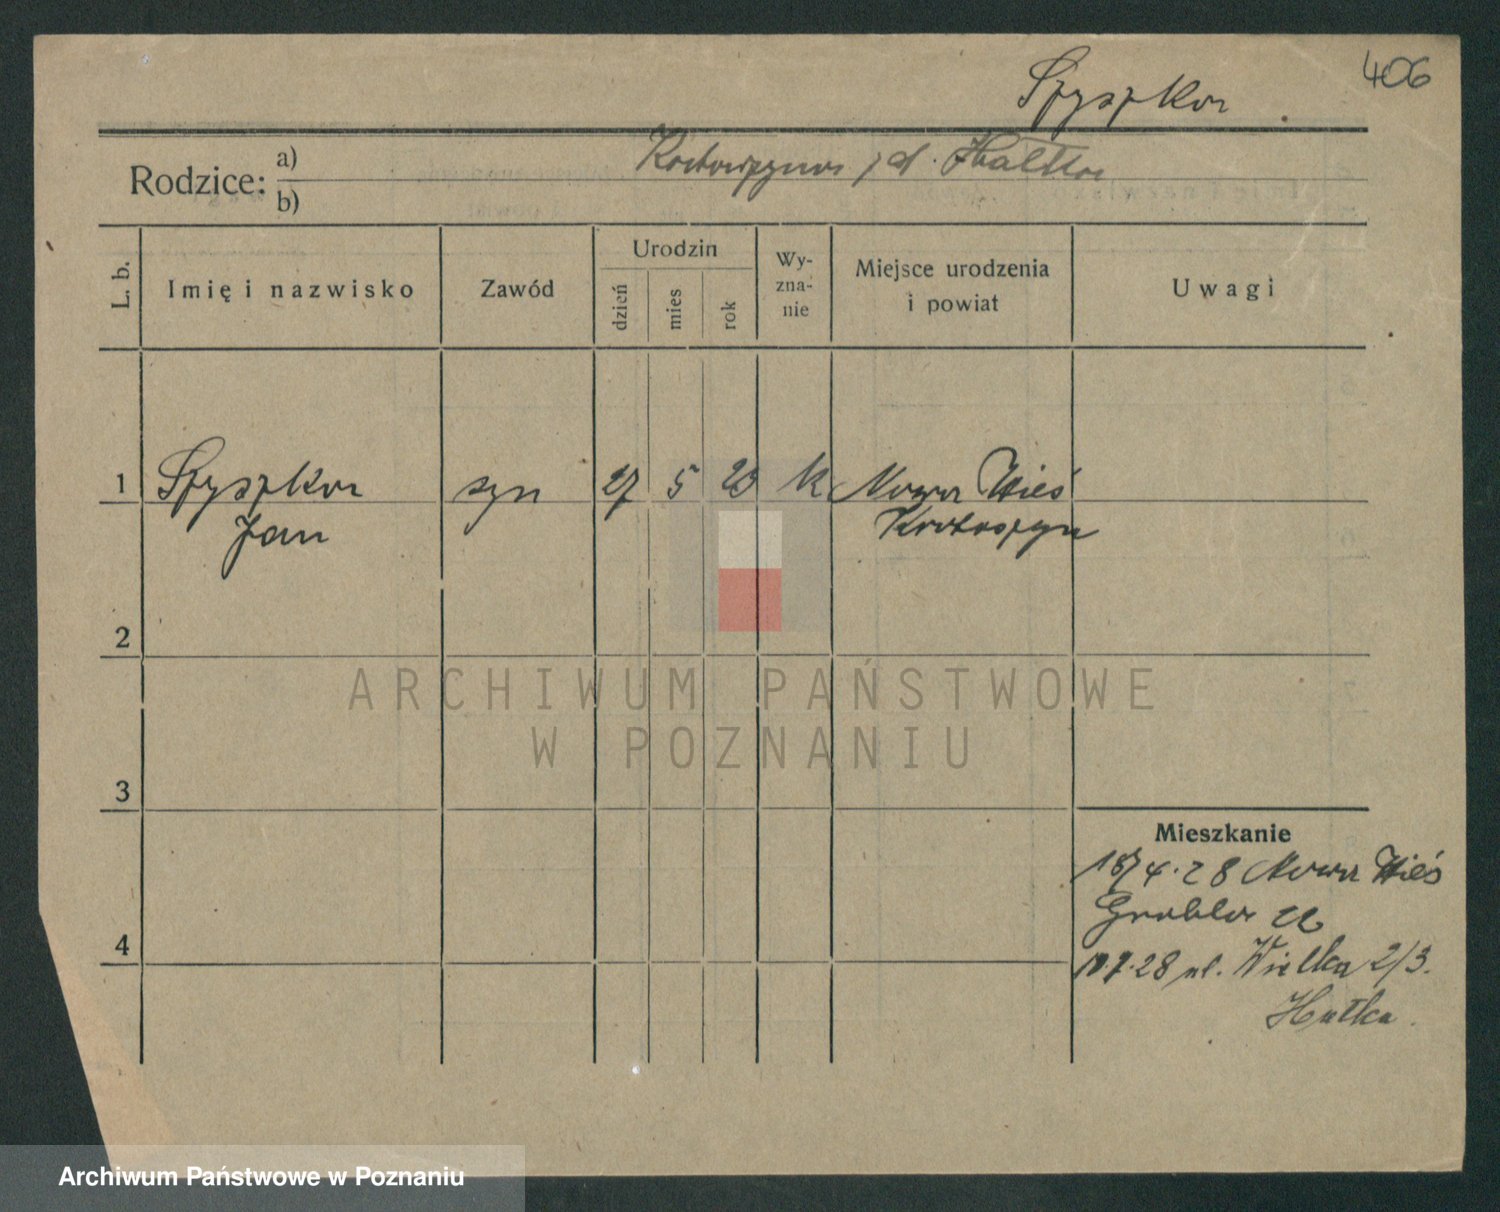 406
Szyszka
Rodzice:
a)
b)
Katarzyna z d. Hałka
L. b.
Imię i nazwisko
Zawód
Urodzin
dzień
mies
rok
Wy-
zna-
nie
Miejsce urodzenia
i powiat
Uwagi
1
Szyszka
Jan
syn
27
5
k
Nowa Wieś
Krotoszyn
2
3
4
ARCHIWUM PAŃSTWOWE
W POZNANIU
Mieszkanie
4.28 Nowa Wieś
Grobla
28 ul. Wielka 2/3.
Hałka.
Archiwum Państwowe w Poznaniu